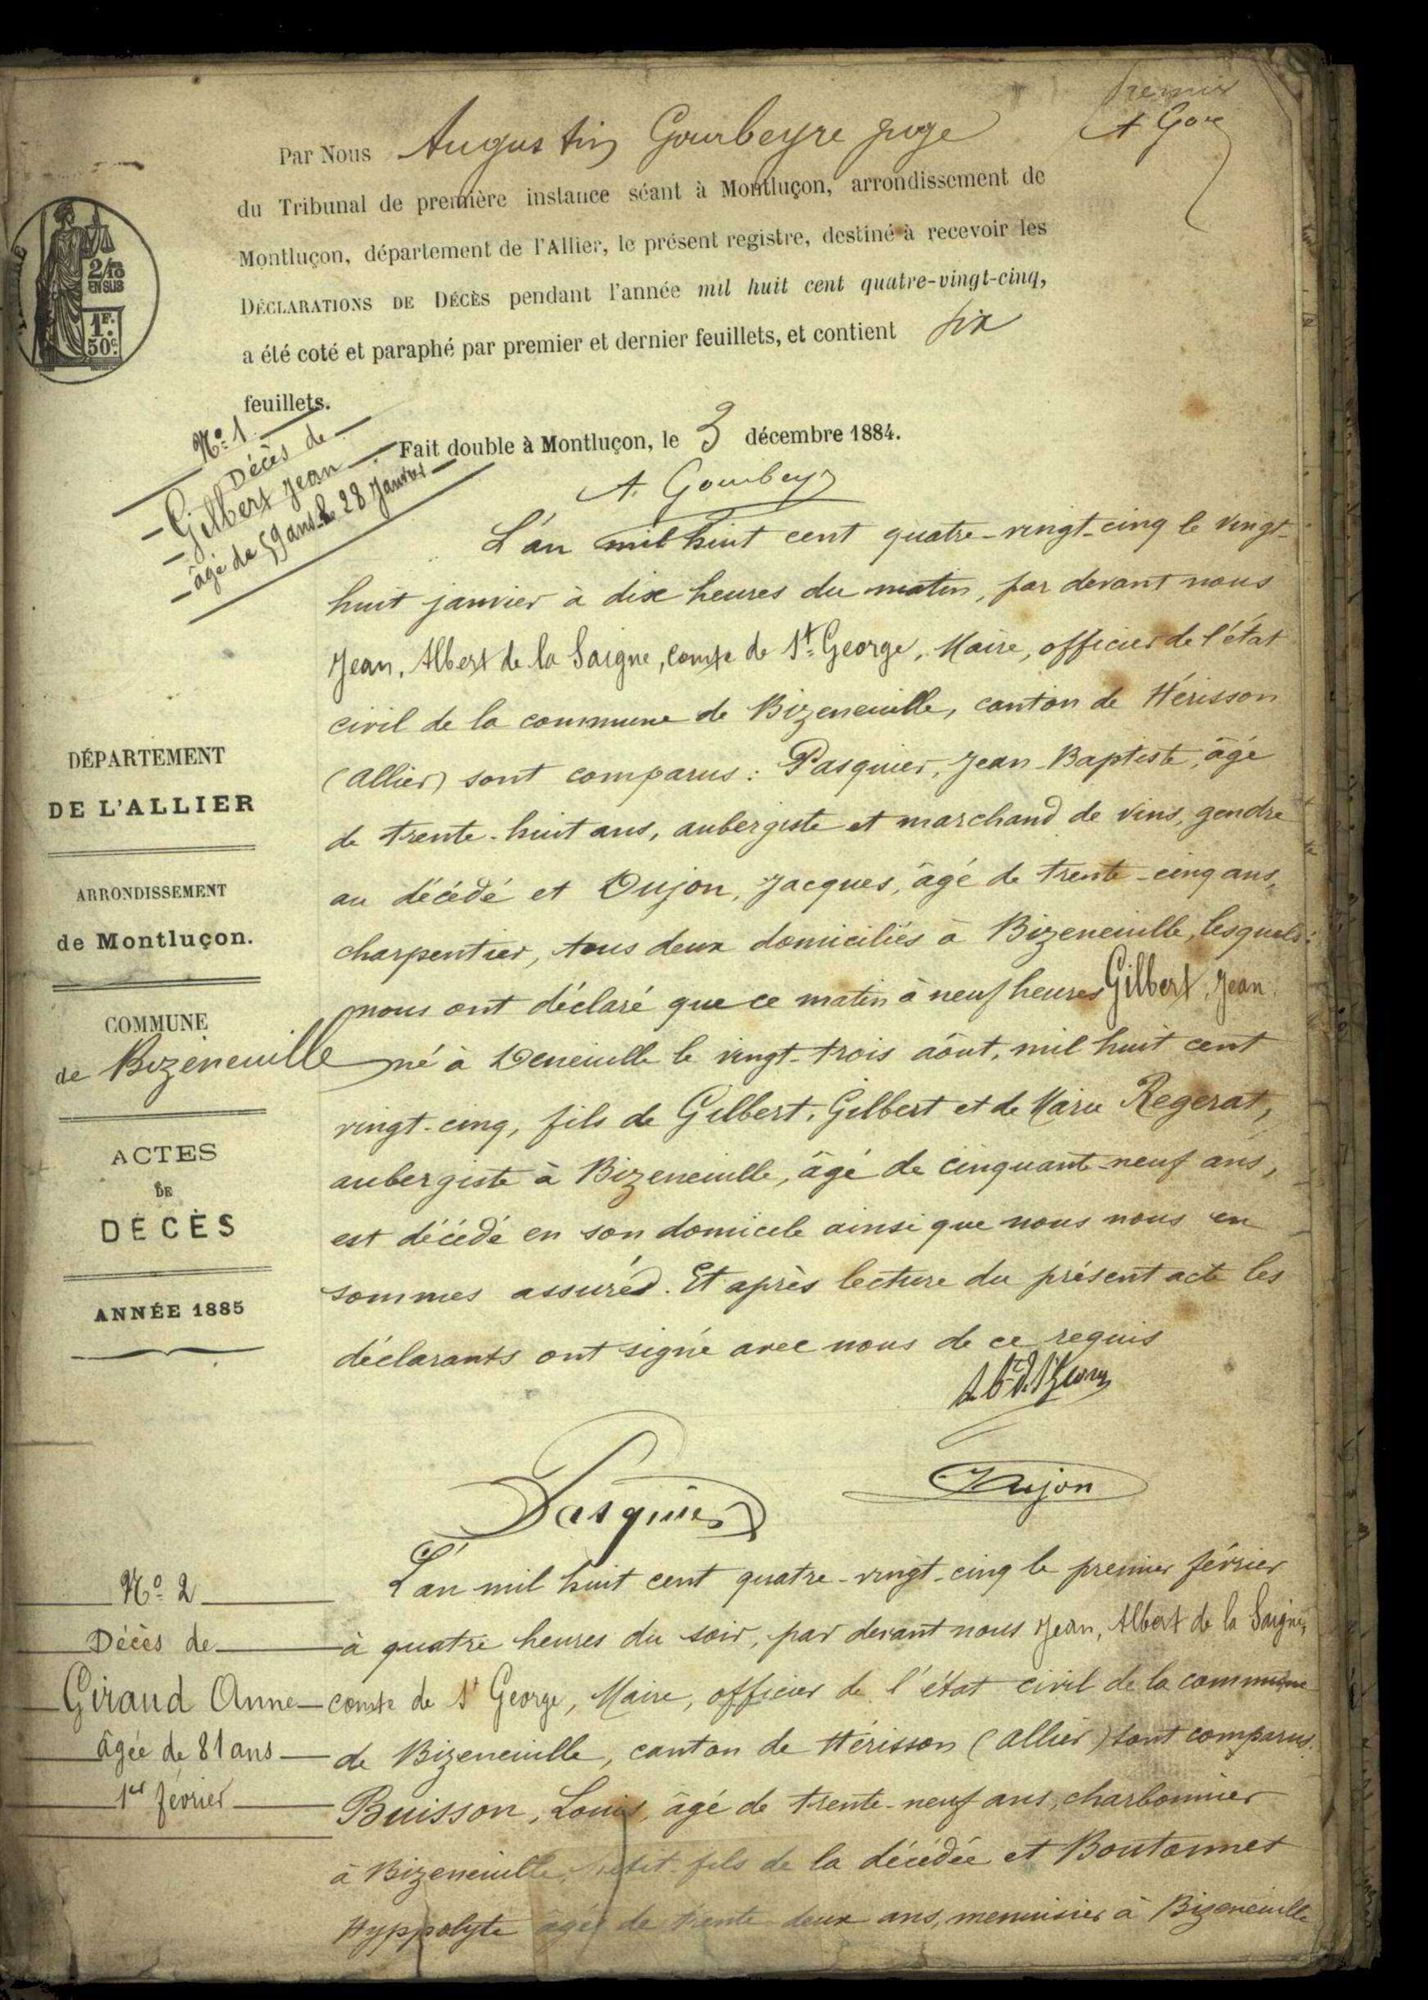 premier
A Gou
Par Nous Augustin Gourbeyre juge
du Tribunal de première instance séant à Montluçon, arrondissement de
Montluçon, département de l'Allier, le présent registre, destiné à recevoir les
DÉCLARATIONS DE DÉCÈS pendant l'année mil huit cent quatre-vingt-cinq,
a été coté et paraphé par premier et dernier feuillets, et contient six
feuillets.
Fait double à Montluçon, le 3 décembre 1884.
A. Gourbeyre
2/10
EN SUS
1F.
50c.
No. 1
Décès de
Gilbert Jean
âgé de 59 ans le 28 janvier
L'an mil huit cent quatre-vingt-cinq le vingt-
huit janvier à dix heures du matin, par devant nous
Jean, Albert de la Saigne, comte de St. George, Maire, officier de l'état
civil de la commune de Bizeneuille, canton de Hérisson
(Allier) sont comparus : Pasquier, Jean-Baptiste, âgé
de trente-huit ans, aubergiste et marchand de vins, gendre
au décédé et Dujon, Jacques, âgé de trente-cinq ans,
charpentier, tous deux domiciliés à Bizeneuille, lesquels
nous ont déclaré que ce matin à neuf heures Gilbert, Jean
né à Deneuille le vingt-trois aôut, mil huit cent
vingt-cinq, fils de Gilbert, Gilbert et de Marie Regerat,
aubergiste à Bizeneuille, âgé de cinquante-neuf ans,
est décédé en son domicile ainsi que nous nous en
sommes assurés. Et après lecture du présent acte les
déclarants ont signé avec nous de ce requis
Pasquier
Dujon
DÉPARTEMENT
DE L'ALLIER
ARRONDISSEMENT
de Montluçon.
COMMUNE
de Bizeneuille
ACTES
DE
DÉCÈS
ANNÉE 1885
No. 2
Décès de
Giraud Anne
âgée de 81 ans
1er février
L'an mil huit cent quatre-vingt-cinq le premier février
à quatre heures du soir, par devant nous Jean, Albert de la Saigne,
comte de St George, Maire, officier de l'état civil de la commune
de Bizeneuille, canton de Hérisson (Allier) sont comparus
Buisson, Louis, âgé de trente-neuf ans, charbonnier
à Bizeneuille, petit-fils de la décédée et Boutonnet
Hyppolyte âgé de trente-deux ans, menuisier à Bizeneuille